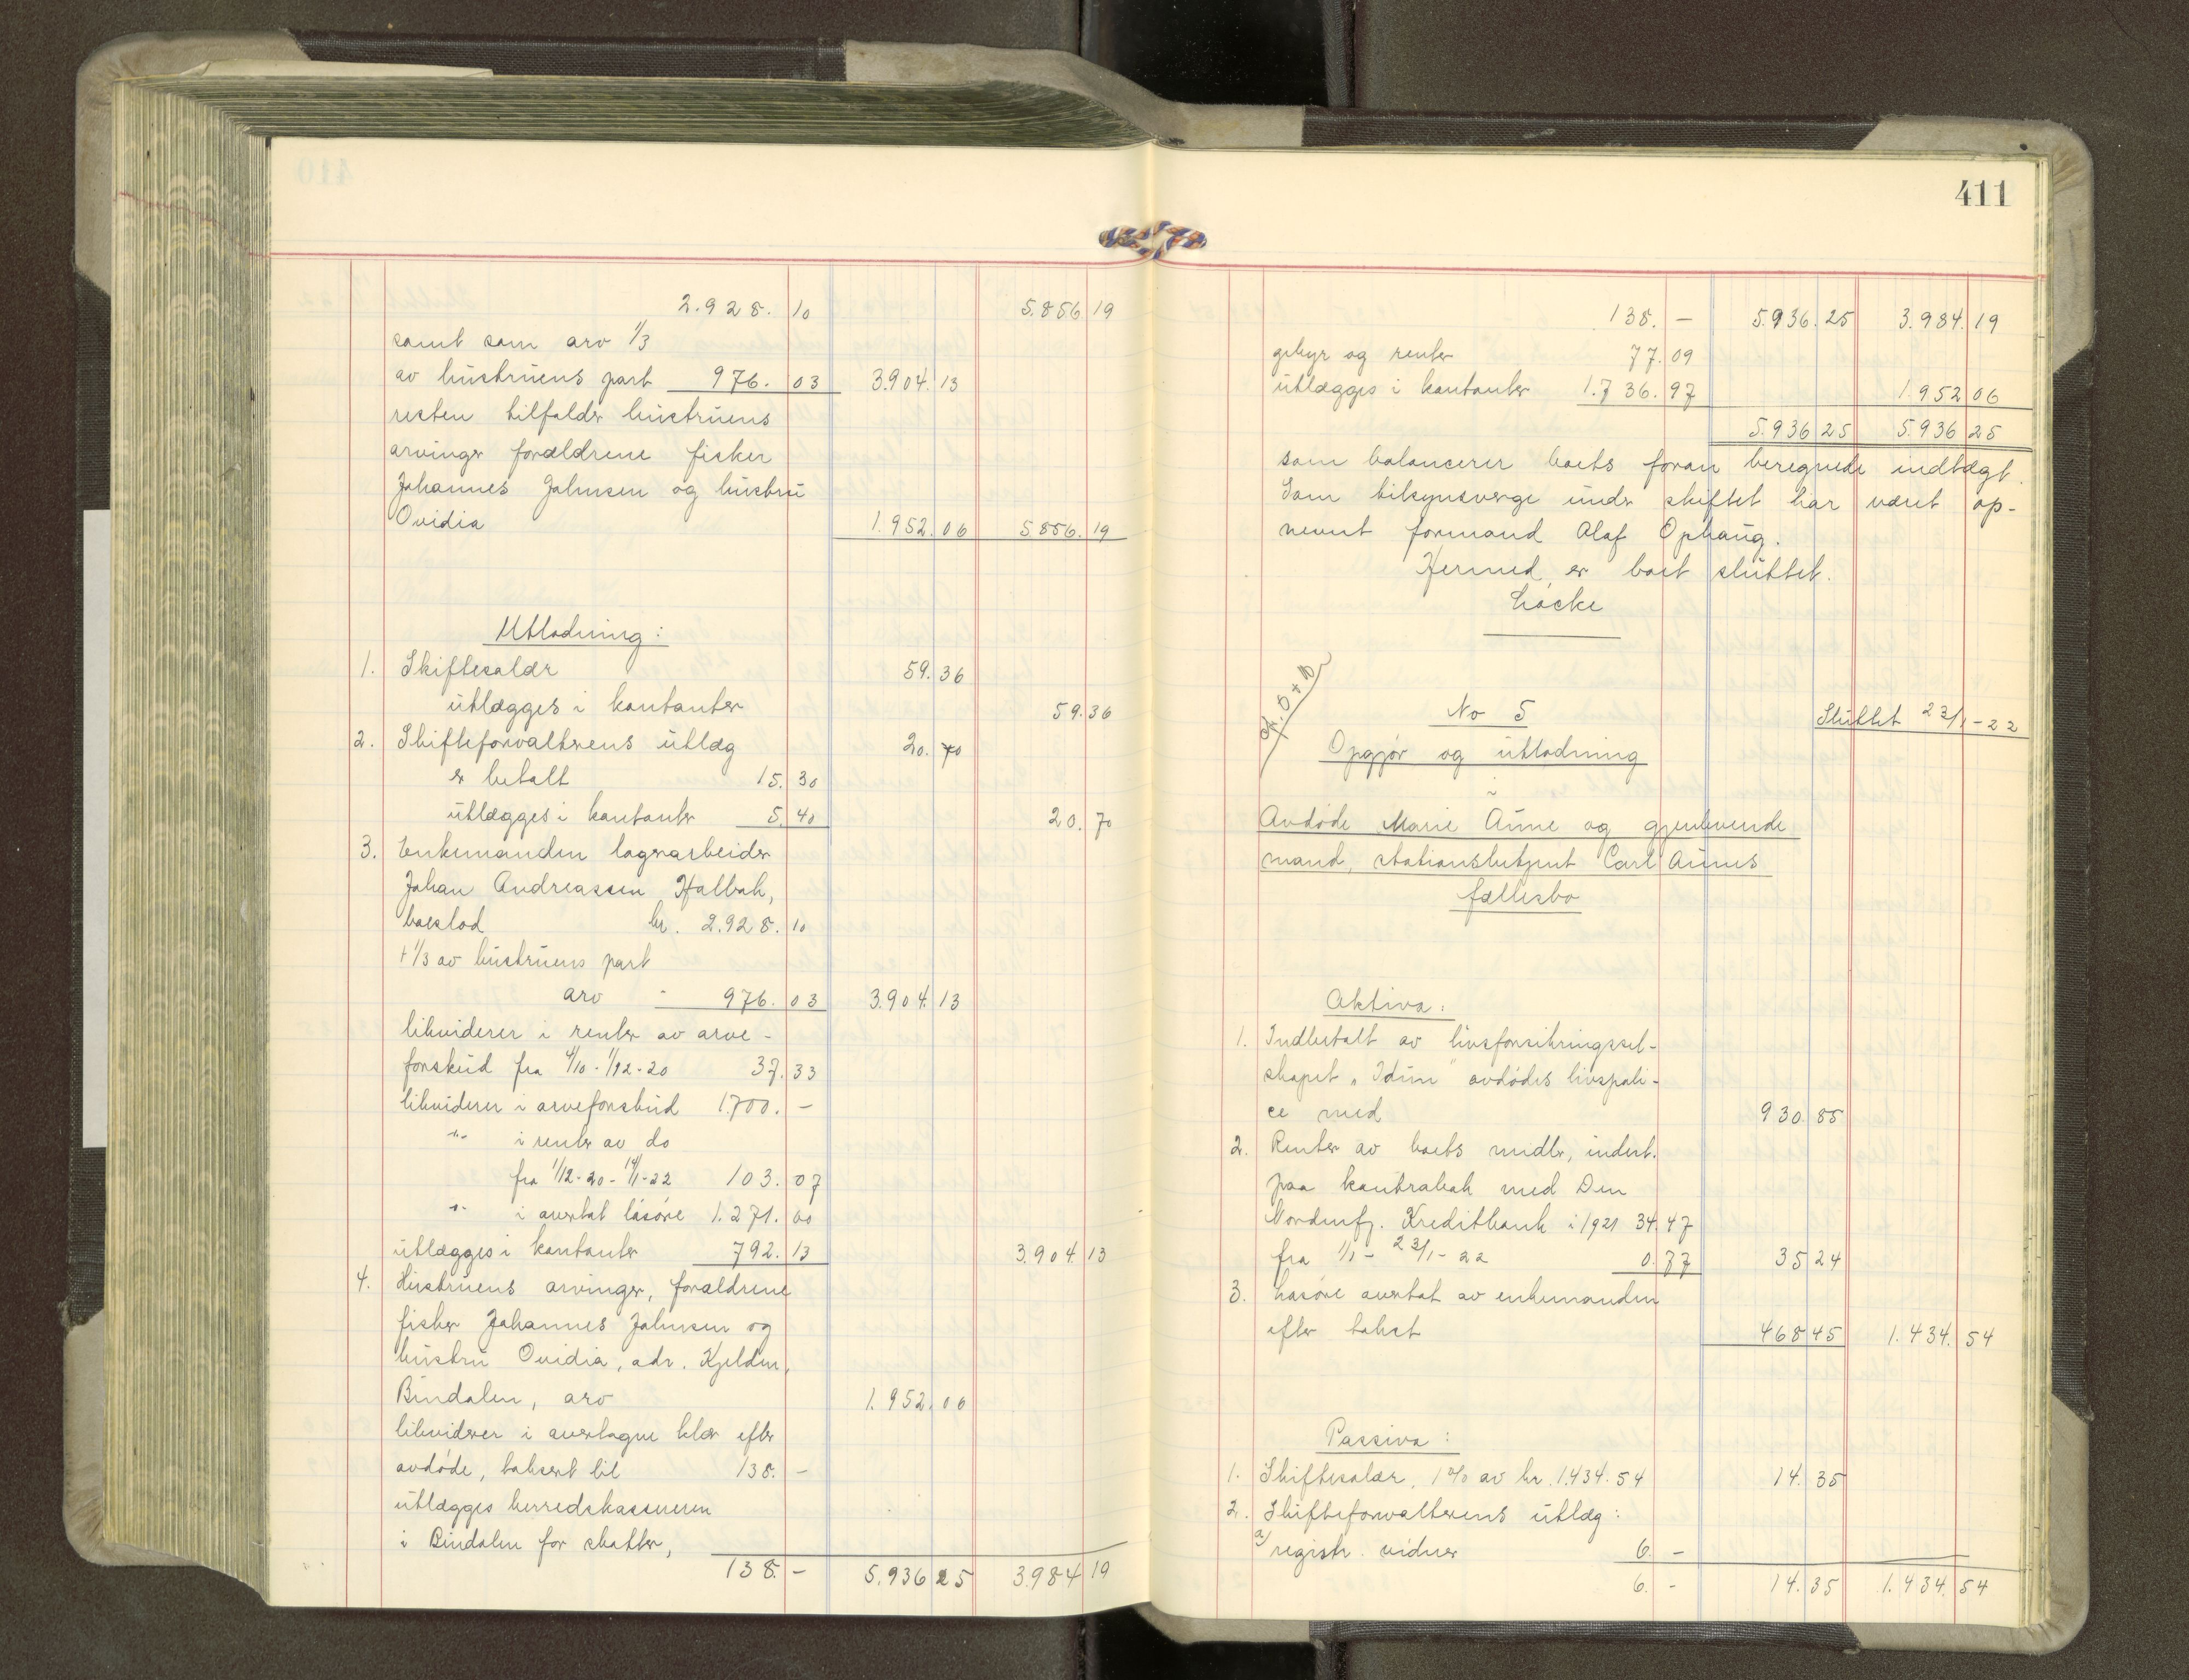 2.928. 10 5.856 19
samt som arv 1/3
av hustruens part 976. 03 3.904. 13
resten tilfalder hustruens
arvinger forældrene fisker
Johannes Johnsen og hustru
Ovidia 1.952. 06 5.856. 19
Utlodning:
1. Skiftesalær 59. 36
utlægges i kontanter 59. 36
2. Skifteforvalterens utlæg 20. 70
er betalt 15. 30
utlægges i kontanter 5. 40 20. 70
3. Enkemanden lagerarbeider
Johan Andreassen Halbak,
boeslod kr. 2.928. 10
+ 1/3 av hustruens part
arv - 976. 03 3.904. 13
likviderer i renter av arve-
forskud fra 4/10-1/12-20 37. 33
likviderer i arveforskud 1.700. -
-"- i renter av do
fra 1/12-20-14/1-22 103. 07
-"- i overtat løsøre 1.271. 60
utlægges i kontanter 792. 13 3.904. 13
4. Hustruens arvinger, forældrene
fisker Johannes Johnsen og
hustru Ovidia, adr. Kjelden,
Bindalen, arv 1.952. 06
likviderer i overtagne klær efter
avdøde, taksert til 138. -
utlægges herredskassereren
i Bindalen for skatter,
138. - 5.936 25 3.984 19
411
138. - 5.936. 25 3.984. 19
gebyr og renter 77. 09
utlægges i kontanter 1.736. 97 1.952 06
5.936 25 5.936 25
som balancerer boets foran beregnede indtægt.
Som tilsynsverge under skiftet har været op-
nevnt formand Olaf Ophaug.
Hermed er boet sluttet.
Løcke
No 5 Sluttet 23/1-22
Opgjør og utlodning
i
Avdøde Marie Aune og gjenlevende
mand, stationsbetjent Carl Aunes
fællesbo
Aktiva:
1. Indbetalt av livsforsikringssel-
skapet "Idun" avdødes livspoli-
ce med 930 85
2. Renter av boets midler, indest.
paa kontrabok med Den
Nordenfj. Kreditbank i 1921 34. 47
fra 1/1- 23/1-22 0. 77 35 24
3. Løsøre overtat av enkemanden
efter takst 468 45 1.434. 54
Passiva:
1. Skiftesalær, 1% av kr. 1.434. 54 14. 35
2. Skifteforvalterens utlæg:
a/ registr. vidner 6. -
6. - 14. 35 1.434. 54